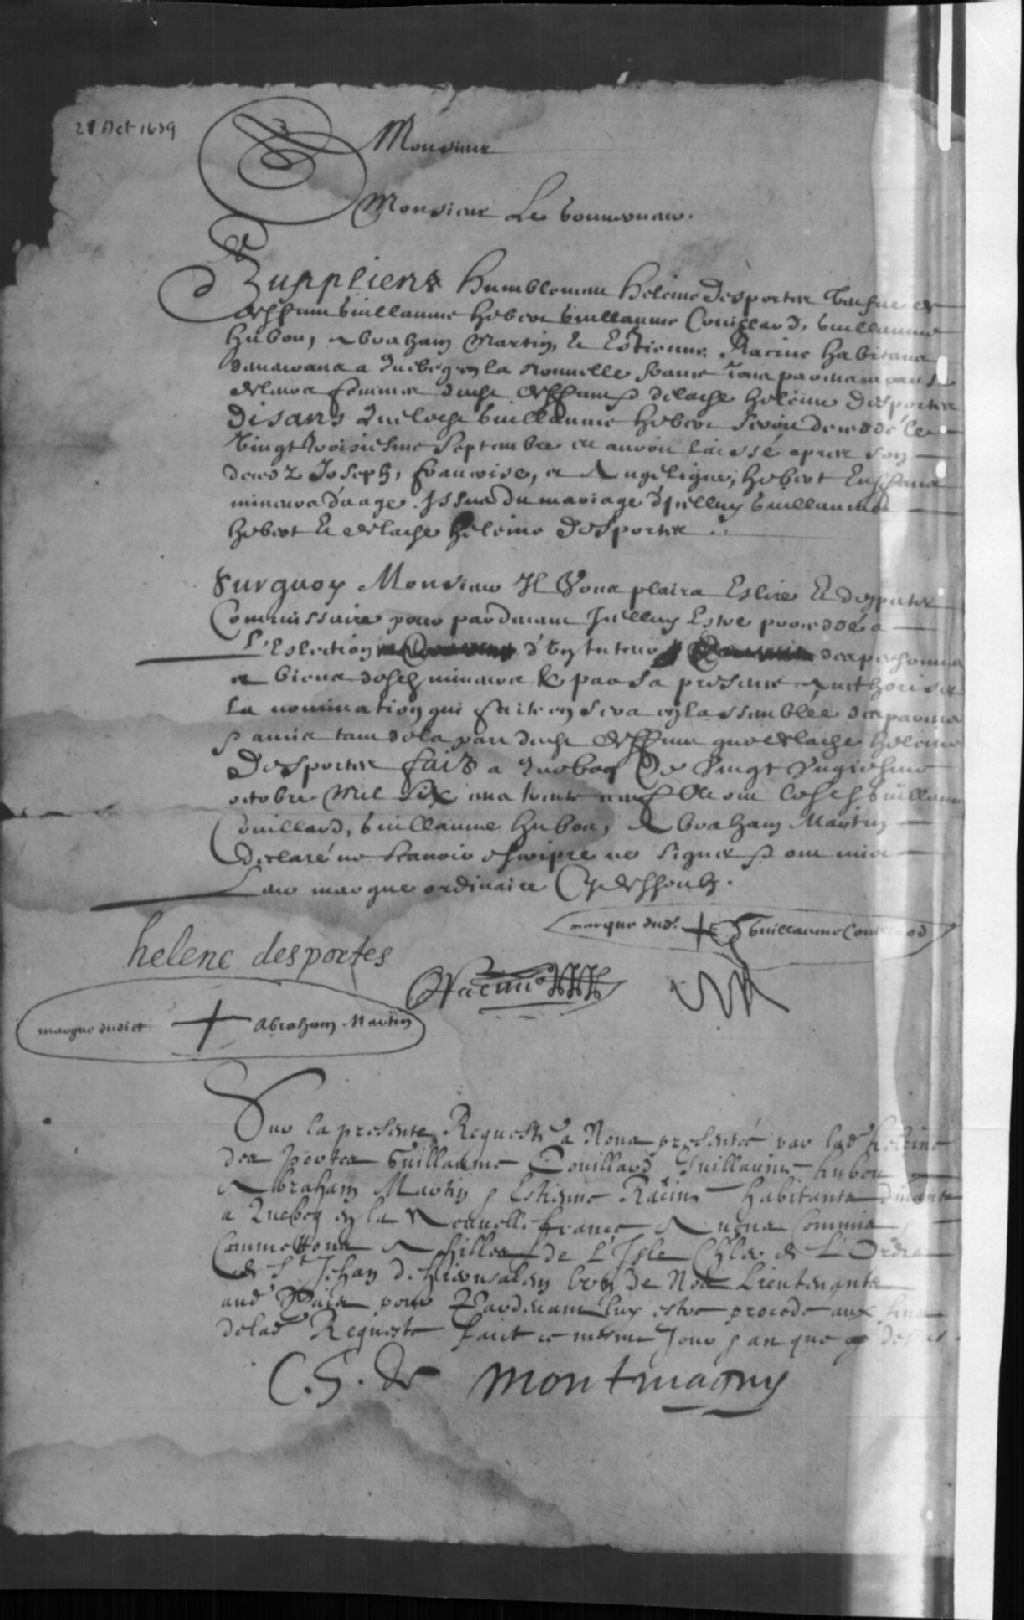 21 Oct 1639
Monsieur
Monsieur Le Gouverneur.
Supplient humblement heleine desportes vefve de
deffunt Guillaume hebert Guillaume Couillard, Guillaume
hubou, Abraham Martin, Et Estienne Racine habitans
demeurans a Quebecq en la Nouvelle france Tous parens
femme dudit deffunt & de lad. heleine desportes
disans Que led. Guillaume hebert seroit deceddé le
Vingt troisiesme Septembre et auroit laissé apres son
deceds Joseph, francoise, et Angelique, hebert Enffans
mineurs d'aage. Issus du mariage d'Icelluy Guillaume
hebert Et de lad. heleine desportes
Surquoy Monsieur Il Vous plaira Eslire Et depputer
Commissaire pour pardevant Icelluy Estre proceddé a
L'Eslection d'Un tuteur des personnes
et biens desd. mineurs & par sa presence authoriser
La nomination qui faite en sera en lassemblee des parens
& amis tant de la part dud. deffunt que de lad. heleine
Desportes faict a Quebecq Le Vingt Ungiesme
octobre Mil Six cens trente neuf Et ont lesd. Guillaume
Couillard, Guillaume hubou, Abraham Martin
declaré ne scavoir escripre ne signer & ont mis
Leur marque ordinaire Cy dessoubz.
marque dud. Guillaume Couillard
helene desportes
Racine
marque dudict Abraham Martin
Sur la presente Requeste a Nous presentée par lad. heleine
des portes Guillaume Couillard Guillaume hubou
Abraham Martin & Estienne Racine habitants
a Quebecq en la Nouvelle france Avons Commis,
Commettons Achilles de L'Isle Chler de L'Ordre
de St Jehan de hierusalem Nostre Lieutenant
aud. Païs pour Pardevant luy estre procedé aux fins
de lad. Requeste faict ce mesme Jour & an que dessus.
C. H. de montmagny